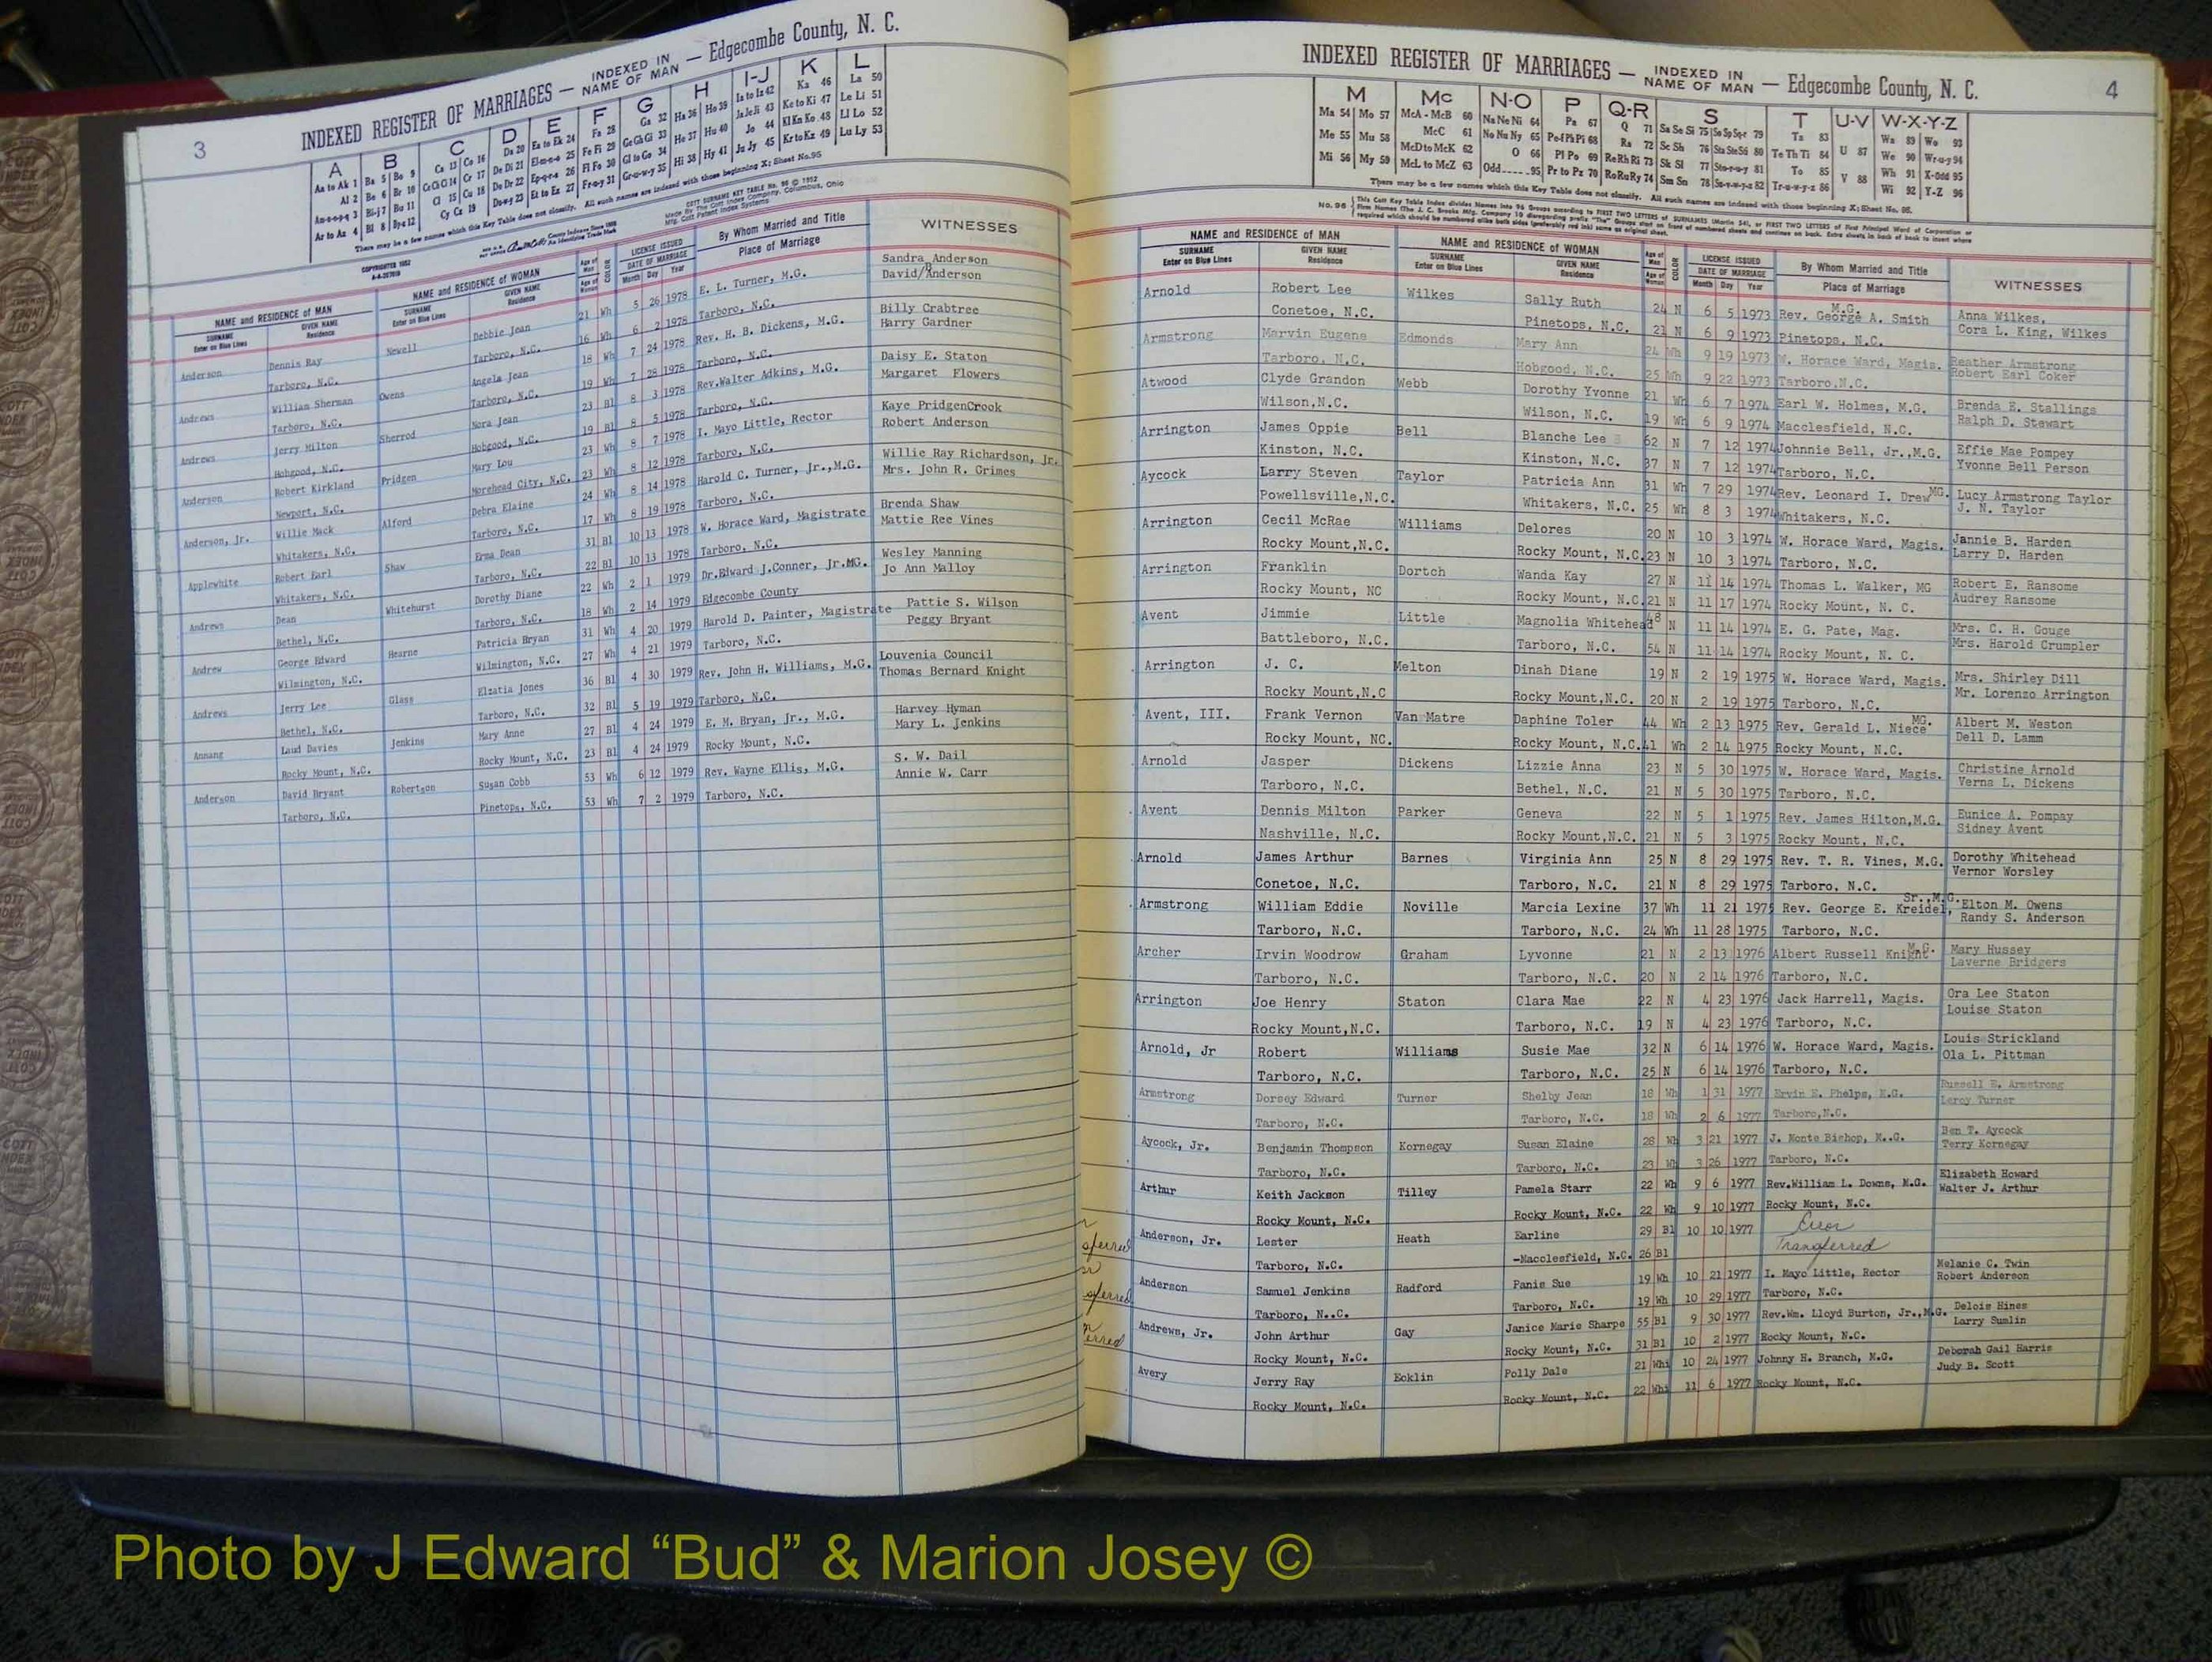 3
INDEXED REGISTER OF MARRIAGES — INDEXED IN NAME OF MAN — Edgecombe County, N. C.
A B C D E F G H I-J K L
Aa to Ak 1 Ba 5 Bo 9 Ca 13 Co 16 Da 20 Ea to Ek 24 Fa 28 Ga 32 Ha 36 Ho 39 Ia to Iz 42 Ka 46 La 50
Al 2 Be 6 Br 10 Ce Ch Ci 14 Cr 17 De Di 21 El-m-n-o 25 Fe Fi 29 Ge Gh Gi 33 He 37 Hu 40 Ja Je Ji 43 Ke to Ki 47 Le Li 51
Am-n-o-p-q 3 Bi-j 7 Bu 11 Cl 15 Cu 18 Do Dr 22 Ep-q-r-s 26 Fl Fo 30 Gl to Go 34 Hi 38 Hy 41 Jo 44 Kl Kn Ko 48 Ll Lo 52
Ar to Az 4 Bl 8 By-z 12 Cy Cz 19 Du-w-y 23 Et to Ez 27 Fr-u-y 31 Gr-u-w-y 35 Ju Jy 45 Kr to Kz 49 Lu Ly 53
There may be a few names which this Key Table does not classify. All such names are indexed with those beginning X; Sheet No. 95
COPYRIGHTED 1952
COTT SURNAME KEY TABLE No. 96 © 1952
Made By The Cott Index Company, Columbus, Ohio
Mfg. Cott Patent Index Systems
NAME and RESIDENCE of MAN NAME and RESIDENCE of WOMAN Age of Man COLOR LICENSE ISSUED By Whom Married and Title WITNESSES
SURNAME Enter on Blue Lines GIVEN NAME Residence SURNAME Enter on Blue Lines GIVEN NAME Residence Age of Woman DATE OF MARRIAGE Month Day Year Place of Marriage
Anderson Dennis Ray Newell Debbie Jean 21 Wh 5 26 1978 E. L. Turner, M.G. Sandra Anderson
Tarboro, N.C. Tarboro, N.C. 16 Wh 6 2 1978 Tarboro, N.C. David B Anderson
Andrews William Sherman Owens Angela Jean 18 Wh 7 24 1978 Rev. H. B. Dickens, M.G. Billy Crabtree
Tarboro, N.C. Tarboro, N.C. 19 Wh 7 28 1978 Tarboro, N.C. Harry Gardner
Andrews Jerry Milton Sherrod Nora Jean 23 Bl 8 3 1978 Rev.Walter Adkins, M.G. Daisy E. Staton
Hobgood, N.C. Hobgood, N.C. 19 Bl 8 5 1978 Tarboro, N.C. Margaret Flowers
Anderson Robert Kirkland Pridgen Mary Lou 23 Wh 8 7 1978 I. Mayo Little, Rector Kaye PridgenCrook
Newport, N.C. Morehead City, N.C. 23 Wh 8 12 1978 Tarboro, N.C. Robert Anderson
Anderson, Jr. Willie Mack Alford Debra Elaine 24 Wh 8 14 1978 Harold C. Turner, Jr.,M.G. Willie Ray Richardson, Jr.
Whitakers, N.C. Tarboro, N.C. 17 Wh 8 19 1978 Tarboro, N.C. Mrs. John R. Grimes
Applewhite Robert Earl Shaw Erma Dean 31 Bl 10 13 1978 W. Horace Ward, Magistrate Brenda Shaw
Whitakers, N.C. Tarboro, N.C. 22 Bl 10 13 1978 Tarboro, N.C. Mattie Ree Vines
Andrews Dean Whitehurst Dorothy Diane 22 Wh 2 1 1979 Dr.Edward J.Conner, Jr.MG. Wesley Manning
Bethel, N.C. Tarboro, N.C. 18 Wh 2 14 1979 Edgecombe County Jo Ann Malloy
Andrew George Edward Hearne Patricia Bryan 31 Wh 4 20 1979 Harold D. Painter, Magistrate Pattie S. Wilson
Wilmington, N.C. Wilmington, N.C. 27 Wh 4 21 1979 Tarboro, N.C. Peggy Bryant
Andrews Jerry Lee Glass Elzatia Jones 36 Bl 4 30 1979 Rev. John H. Williams, M.G. Louvenia Council
Bethel, N.C. Tarboro, N.C. 32 Bl 5 19 1979 Tarboro, N.C. Thomas Bernard Knight
Annang Laud Davies Jenkins Mary Anne 27 Bl 4 24 1979 E. M. Bryan, Jr., M.G. Harvey Hyman
Rocky Mount, N.C. Rocky Mount, N.C. 23 Bl 4 24 1979 Rocky Mount, N.C. Mary L. Jenkins
Anderson David Bryant Robertson Susan Cobb 53 Wh 6 12 1979 Rev. Wayne Ellis, M.G. S. W. Dail
Tarboro, N.C. Pinetops, N.C. 53 Wh 7 2 1979 Tarboro, N.C. Annie W. Carr
4
INDEXED REGISTER OF MARRIAGES — INDEXED IN NAME OF MAN — Edgecombe County, N. C.
M Mc N-O P Q-R S T U-V W-X-Y-Z
Ma 54 Mo 57 McA - McB 60 Na Ne Ni 64 Pa 67 Q 71 Sa Se Si 75 So Sp Sq-r 79 Ta 83 Wa 89 Wo 93
Me 55 Mu 58 McC 61 No Nu Ny 65 Pe-f Ph Pi 68 Ra 72 Sc Sh 76 Sta Ste Sti 80 Te Th Ti 84 U 87 We 90 Wr-u-y 94
Mi 56 My 59 McD to McK 62 O 66 Pl Po 69 Re Rh Ri 73 Sk Sl 77 Sto-r-u-y 81 To 85 Wh 91 X-Odd 95
McL to McZ 63 Odd 95 Pr to Pz 70 Ro Ru Ry 74 Sm Sn 78 Su-v-w-y-z 82 Tr-u-w-y-z 86 V 88 Wi 92 Y-Z 96
There may be a few names which this Key Table does not classify. All such names are indexed with those beginning X; Sheet No. 95.
NAME and RESIDENCE OF MAN NAME and RESIDENCE of WOMAN Age of Man COLOR LICENSE ISSUED By Whom Married and Title WITNESSES
SURNAME Enter on Blue Lines GIVEN NAME Residence SURNAME Enter on Blue Lines GIVEN NAME Residence Age of Woman DATE OF MARRIAGE Month Day Year Place of Marriage
Arnold Robert Lee Wilkes Sally Ruth 24 N 6 5 1973 Rev. George A. Smith M.G. Anna Wilkes,
Conetoe, N.C. Pinetops, N.C. 21 N 6 9 1973 Pinetops, N.C. Cora L. King, Wilkes
Armstrong Marvin Eugene Edmonds Mary Ann 24 Wh 9 19 1973 W. Horace Ward, Magis. Heather Armstrong
Tarboro, N.C. Hobgood, N.C. 25 Wh 9 22 1973 Tarboro,N.C. Robert Earl Coker
Atwood Clyde Grandon Webb Dorothy Yvonne 21 Wh 6 7 1974 Earl W. Holmes, M.G. Brenda E. Stallings
Wilson,N.C. Wilson, N.C. 19 Wh 6 9 1974 Macclesfield, N.C. Ralph D. Stewart
Arrington James Oppie Bell Blanche Lee 62 N 7 12 1974 Johnnie Bell, Jr.,M.G. Effie Mae Pompey
Kinston, N.C. Kinston, N.C. 37 N 7 12 1974 Tarboro, N.C. Yvonne Bell Person
Aycock Larry Steven Taylor Patricia Ann 31 Wh 7 29 1974 Rev. Leonard I. Drew MG. Lucy Armstrong Taylor
Powellsville,N.C. Whitakers, N.C. 25 Wh 8 3 1974 Whitakers, N.C. J. N. Taylor
Arrington Cecil McRae Williams Delores 20 N 10 3 1974 W. Horace Ward, Magis. Jannie B. Harden
Rocky Mount,N.C. Rocky Mount, N.C. 23 N 10 3 1974 Tarboro, N.C. Larry D. Harden
Arrington Franklin Dortch Wanda Kay 27 N 11 14 1974 Thomas L. Walker, MG Robert E. Ransome
Rocky Mount, NC Rocky Mount, N.C. 21 N 11 17 1974 Rocky Mount, N. C. Audrey Ransome
Avent Jimmie Little Magnolia Whitehead N 11 14 1974 E. G. Pate, Mag. Mrs. C. H. Gouge
Battleboro, N.C. Tarboro, N.C. 54 N 11 14 1974 Rocky Mount, N. C. Mrs. Harold Crumpler
Arrington J. C. Melton Dinah Diane 19 N 2 19 1975 W. Horace Ward, Magis. Mrs. Shirley Dill
Rocky Mount,N.C Rocky Mount,N.C. 20 N 2 19 1975 Tarboro, N.C. Mr. Lorenzo Arrington
Avent, III. Frank Vernon Van Matre Daphine Toler 44 Wh 2 13 1975 Rev. Gerald L. Niece MG. Albert M. Weston
Rocky Mount, NC. Rocky Mount, N.C. 41 Wh 2 14 1975 Rocky Mount, N.C. Dell D. Lamm
Arnold Jasper Dickens Lizzie Anna 23 N 5 30 1975 W. Horace Ward, Magis. Christine Arnold
Tarboro, N.C. Bethel, N.C. 21 N 5 30 1975 Tarboro, N.C. Verna L. Dickens
Avent Dennis Milton Parker Geneva 22 N 5 1 1975 Rev. James Hilton,M.G. Eunice A. Pompay
Nashville, N.C. Rocky Mount,N.C. 21 N 5 3 1975 Rocky Mount, N.C. Sidney Avent
Arnold James Arthur Barnes Virginia Ann 25 N 8 29 1975 Rev. T. R. Vines, M.G. Dorothy Whitehead
Conetoe, N.C. Tarboro, N.C. 21 N 8 29 1975 Tarboro, N.C. Vernor Worsley
Armstrong William Eddie Noville Marcia Lexine 37 Wh 11 21 1975 Rev. George E. Kreidel, Sr.,M.G. Elton M. Owens
Tarboro, N.C. Tarboro, N.C. 24 Wh 11 28 1975 Tarboro, N.C. Randy S. Anderson
Archer Irvin Woodrow Graham Lyvonne 21 N 2 13 1976 Albert Russell Knight M.G. Mary Hussey
Tarboro, N.C. Tarboro, N.C. 20 N 2 14 1976 Tarboro, N.C. Laverne Bridgers
Arrington Joe Henry Staton Clara Mae 22 N 4 23 1976 Jack Harrell, Magis. Ora Lee Staton
Rocky Mount,N.C. Tarboro, N.C. 19 N 4 23 1976 Tarboro, N.C. Louise Staton
Arnold, Jr Robert Williams Susie Mae 32 N 6 14 1976 W. Horace Ward, Magis. Louis Strickland
Tarboro, N.C. Tarboro, N.C. 25 N 6 14 1976 Tarboro, N.C. Ola L. Pittman
Armstrong Dorsey Edward Turner Shelby Jean 18 Wh 1 31 1977 Ervin E. Phelps, M.G. Russell E. Armstrong
Tarboro, N.C. Tarboro, N.C. 18 Wh 2 6 1977 Tarboro,N.C. Leroy Turner
Aycock, Jr. Benjamin Thompson Kornegay Susan Elaine 28 Wh 3 21 1977 J. Monte Bishop, M..G. Ben T. Aycock
Tarboro, N.C. Tarboro, N.C. 23 Wh 3 26 1977 Tarboro, N.C. Terry Kornegay
Arthur Keith Jackson Tilley Pamela Starr 22 Wh 9 6 1977 Rev.William L. Downs, M.G. Elizabeth Howard
Rocky Mount, N.C. Rocky Mount, N.C. 22 Wh 9 10 1977 Rocky Mount, N.C. Walter J. Arthur
Anderson, Jr. Lester Heath Earline 29 Bl 10 10 1977 Error
Tarboro, N.C. -Macclesfield, N.C. 26 Bl Transferred
Anderson Samuel Jenkins Radford Panis Sue 19 Wh 10 21 1977 I. Mayo Little, Rector Melanie C. Twin
Tarboro, N..C. Tarboro, N.C. 19 Wh 10 29 1977 Tarboro, N.C. Robert Anderson
Andrews, Jr. John Arthur Gay Janice Marie Sharpe 55 Bl 9 30 1977 Rev.Wm. Lloyd Burton, Jr.,M.G. Delois Hines
Rocky Mount, N.C. Rocky Mount, N.C. 31 Bl 10 2 1977 Rocky Mount, N.C. Larry Sumlin
Avery Jerry Ray Ecklin Polly Dale 21 Whi 10 24 1977 Johnny H. Branch, M.G. Deborah Gail Harris
Rocky Mount, N.C. Rocky Mount, N.C. 22 Whi 11 6 1977 Rocky Mount, N.C. Judy B. Scott
Photo by J Edward “Bud” & Marion Josey ©